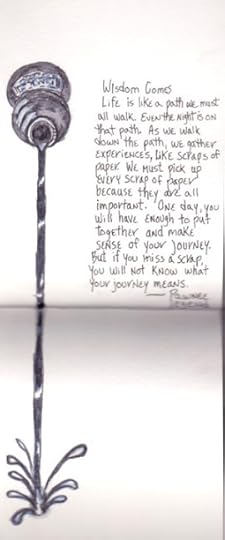 Wisdom Comes
Life is like a path we must
all walk. Even the night is on
that path. As we walk
down the path, we gather
experiences, like scraps of
paper. We must pick up
every scrap of paper
because they are all
important. One day, you
will have enough to put
together and make
sense of your journey.
But if you miss a scrap,
you will not know what
your journey means.